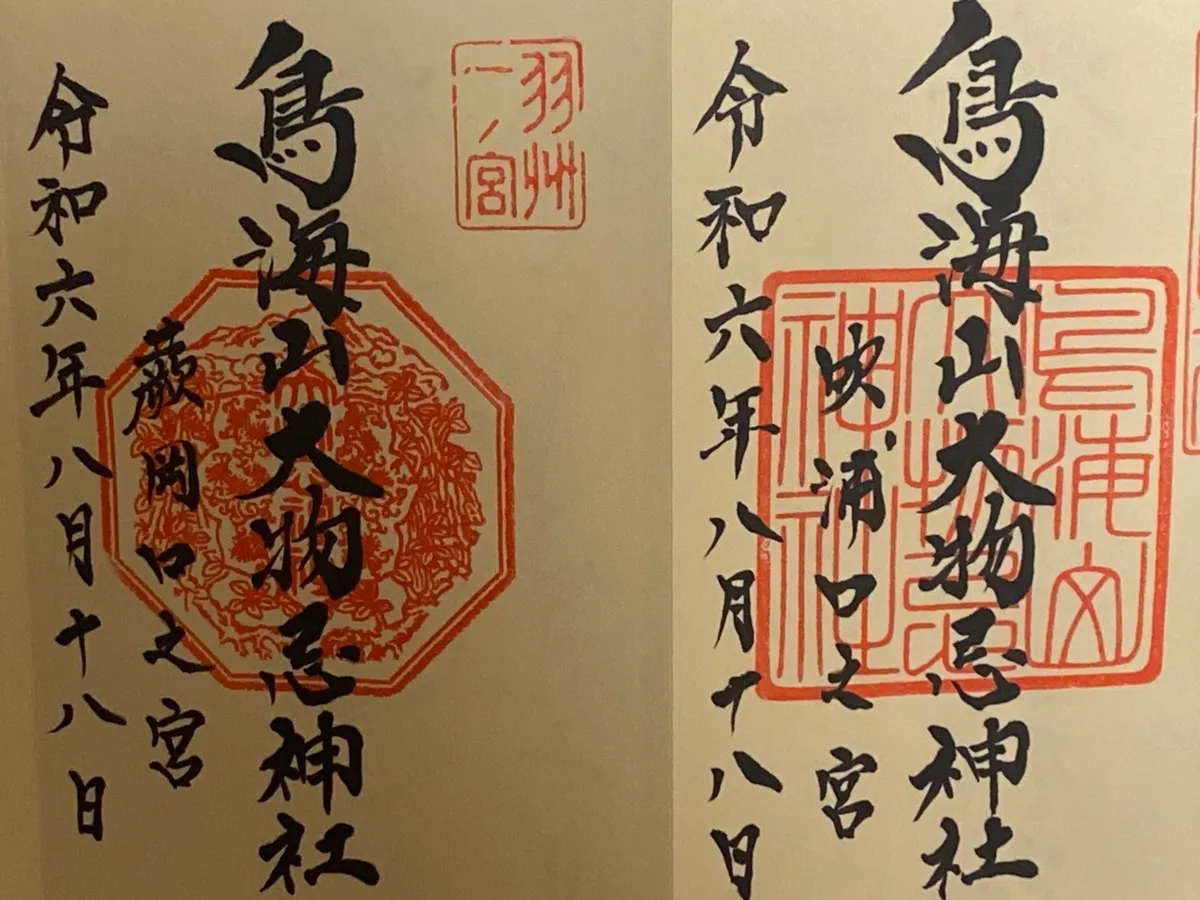 鳥海山大物忌神社
鳥海山
大物忌
神社
吹浦口之宮
令和六年八月十八日
羽州
一ノ宮
鳥海山大物忌神社
蕨岡口之宮
令和六年八月十八日